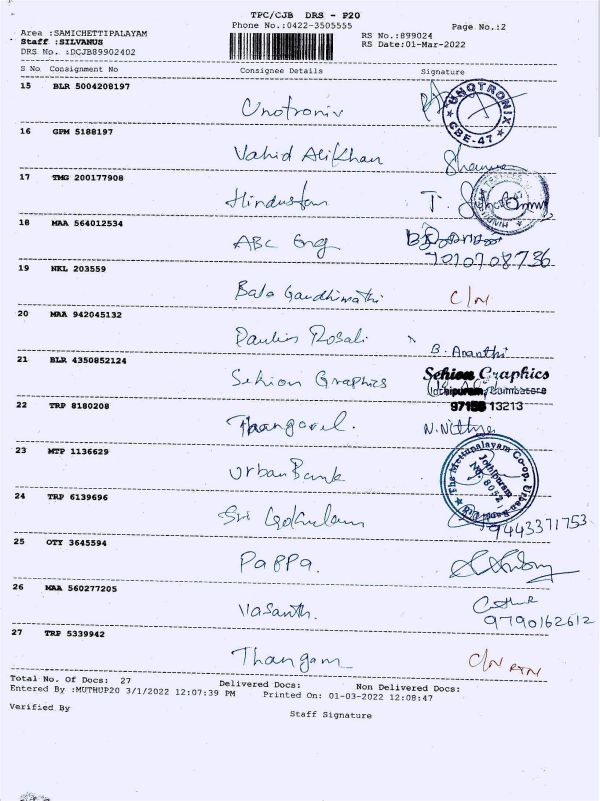 TPC/CJB DRS - P20
Phone No.:0422-3505555 Page No.:2
Area :SAMICHETTIPALAYAM RS No.:899024
Staff :SILVANUS RS Date:01-Mar-2022
DRS No. :DCJB89902402
S No Consignment No Consignee Details Signature
15 BLR 5004208197
Unotronix
UNOTRONIX
CBE-47
16 GPM 5188197
Vahid Alikhan
17 TMG 200177908
Hindustan T
18 MAA 564012534
ABC Eng
7010708736
19 NKL 203559
Bala Gandhimathi C/N
20 MAA 942045132
Paulin Rosali B. Ananthi
21 BLR 4350852124
Sehion Graphics Sehion Graphics
Coimbatore
13213
22 TRP 8180208
Thangavel. N. Nithya
23 MTP 1136629
Urban Bank The Mettupalayam Co-op. Urban Bank
Jothipuram
No. 8052
24 TRP 6139696
Sri Gokulam 9443371753
25 OTY 3645594
Pappa.
26 MAA 560277205
Vasanth. 9790162612
27 TRP 5339942
Thangam C/N RTN
Total No. Of Docs: 27 Delivered Docs: Non Delivered Docs:
Entered By :MUTHUP20 3/1/2022 12:07:39 PM Printed On: 01-03-2022 12:08:47
Verified By Staff Signature